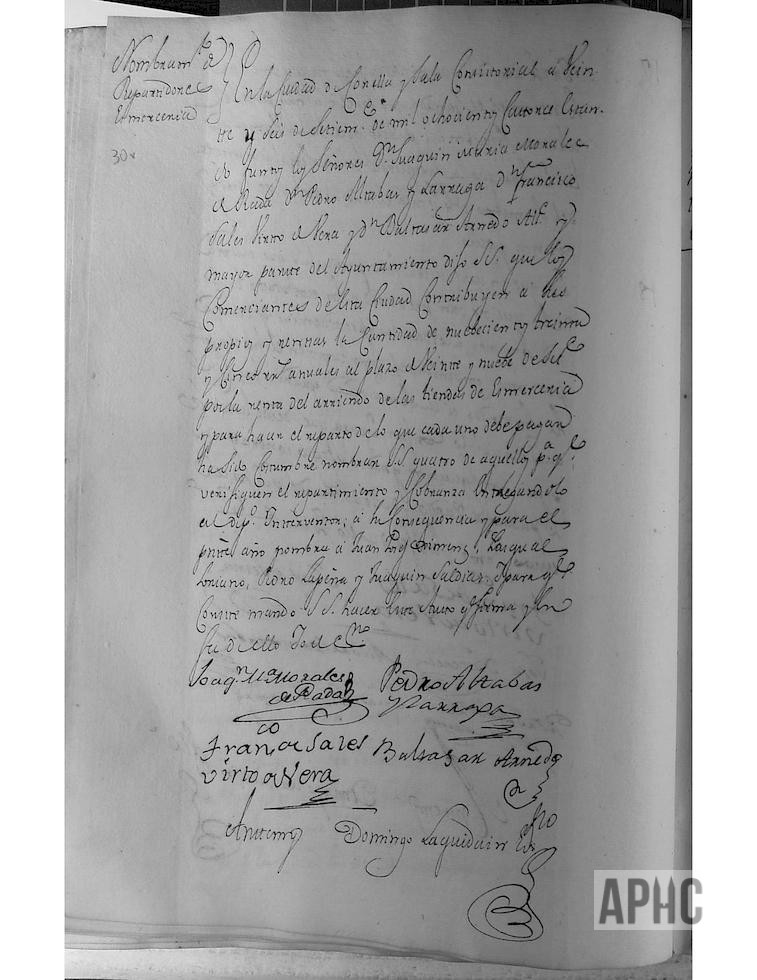 Nombram.to de
Repartidores
Esmerceria
30v
En la Ciudad de Corella y Sala Consistorial à vein
te y seis de Setiem.e de mil ochocientos Catorce Estan-
do juntos los Señores D.n Joaquin Maria Morales
de Rada D.n Pedro Alcabas y Larraga D.n Francisco
Sales Virto de Vera y d.n Baltasar Arnedo
mayor parte del Ayuntamiento dijo S.S. que los
Comerciantes de esta Ciudad Contribuyen à sus
propios y rentas la Cantidad de nuebecientos treinta
y Cinco r.s anuales al plazo de veinte y nuebe de Set.e
por la renta del arriendo de las tiendas de Esmerceria
y para hacer el reparto de lo que cada uno debe pagar
ha sido Costumbre nombrar S.S. quatro de aquellos p.a q.e
verifiquen el repartimiento y Cobranza entregandolo
al Interventor; à su Consequencia y para el
pñte año nombra à Juan Jimenez, Pasqual
Loriano, Pedro Lapeña y Juaquin Saldias. Y para q.e
Conste mandò S.S. hacer este Auto y firma y en
fee de ello Yo el Ess.no
Joaq.n M.a Morales
de Rada
Pedro Alcabas
y Larraga
Fran.co de Sales
Virto de Vera
Baltasar Arnedo
Antemi
Domingo Laquidain Ess.no
APHC